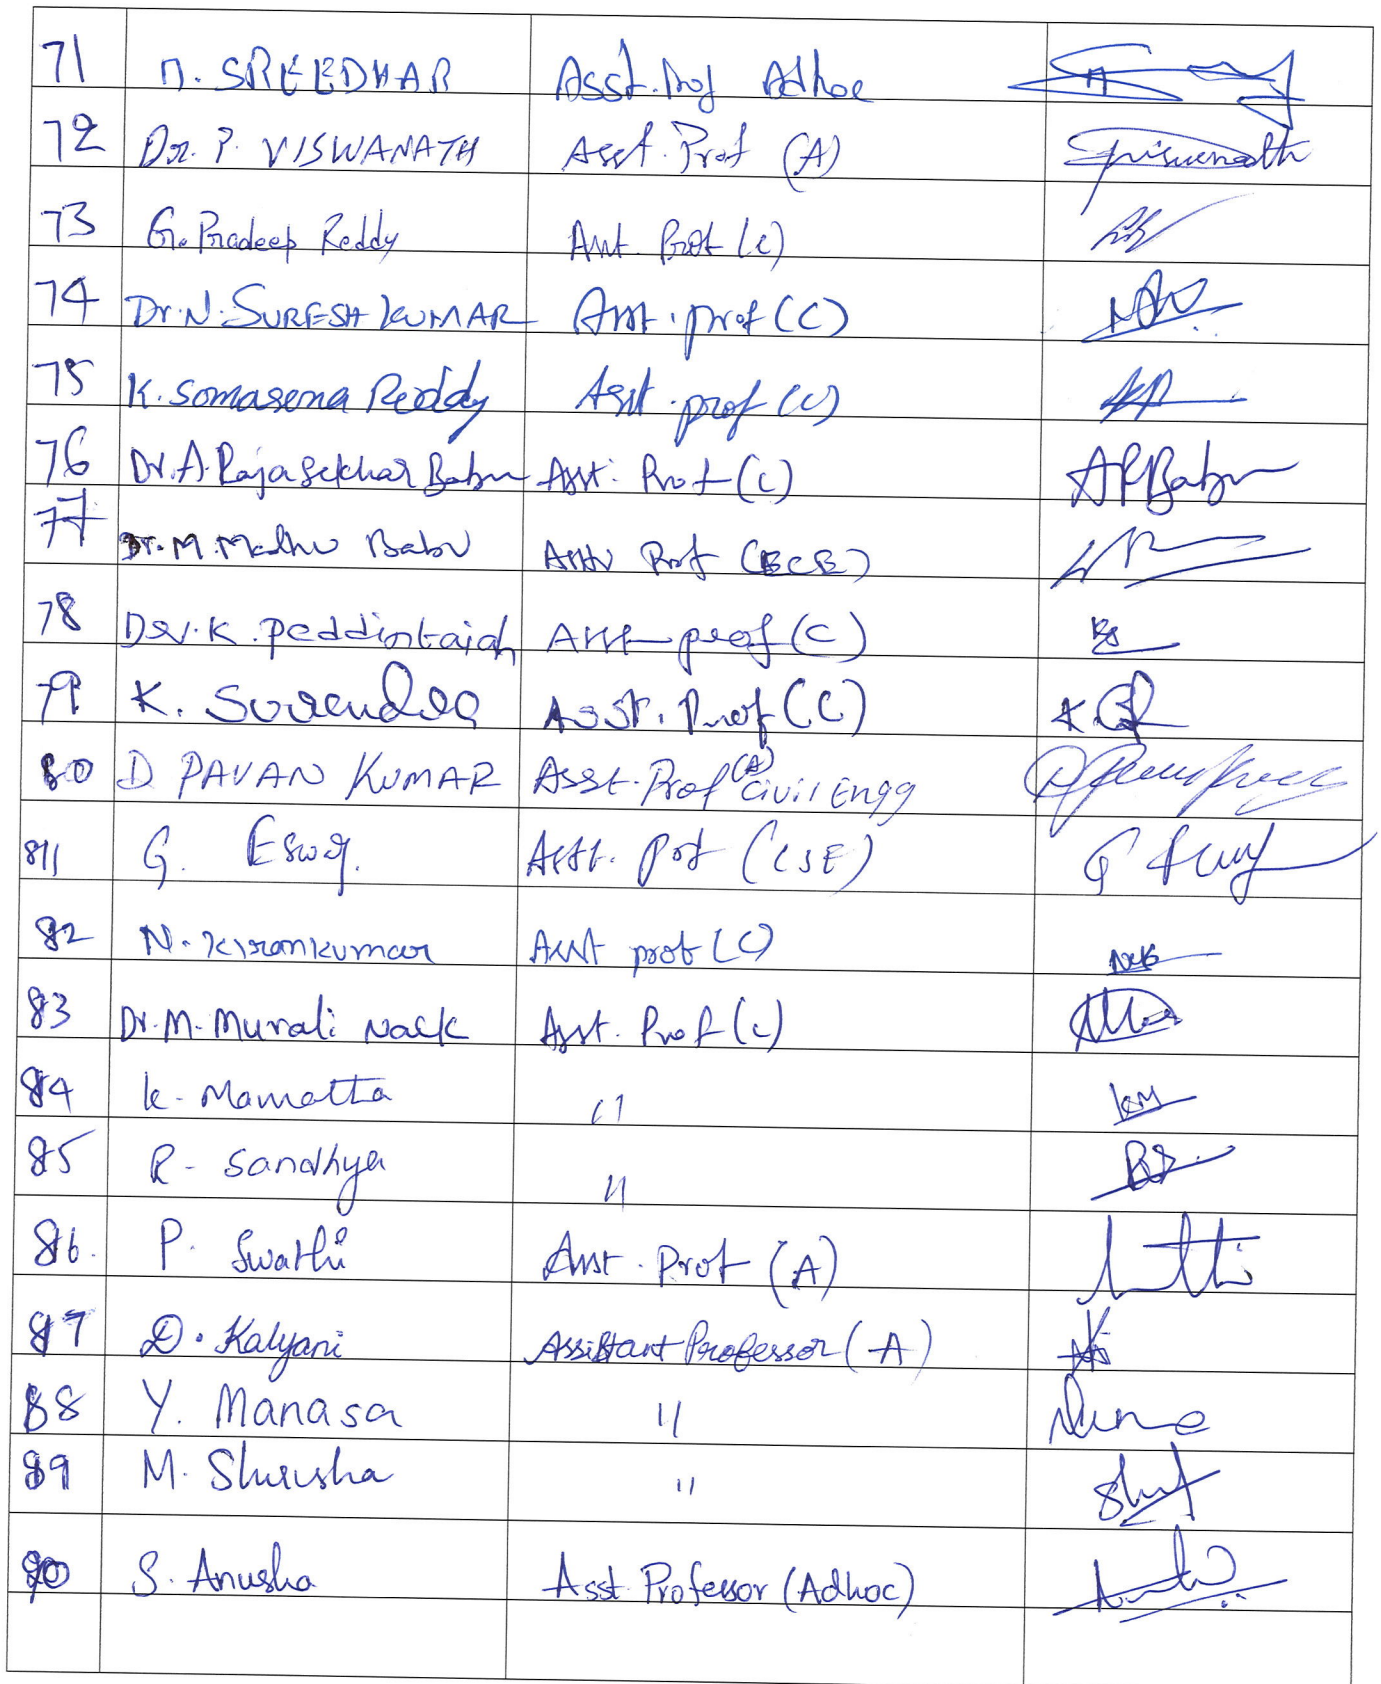 71 n. SREEDHAR Asst. Prof Adhoc
72 Dr. P. VISWANATH Asst. Prof (A)
73 G. Pradeep Reddy Asst. Prof (C)
74 Dr. N. SURESH KUMAR Asst. prof (C)
75 K. Somasena Reddy Asst. prof (C)
76 Dr. A. Rajasekhar Babu Asst. Prof (C) ARBabu
77 Dr. M. Madhu Babu Asst Prof (ECE)
78 Dr. K. Peddintaiah Asst prof (C)
79 K. Surendra Asst. Prof (C)
80 D PAVAN KUMAR Asst. Prof (A) Civil Engg
81 G. Eswar Asst. Prof (CSE)
82 N. Kirankumar Asst prof (C)
83 Dr. M. Murali Naik Asst. Prof (C)
84 K. Mamatha "
85 R. Sandhya "
86. P. Swathi Asst. Prof (A)
87 D. Kalyani Assistant Professor (A)
88 Y. Manasa "
89 M. Shirisha "
90 S. Anusha Asst. Professor (Adhoc)